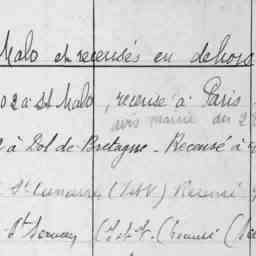 Malo et recensés en dehors
02 à St Malo, recensé à Paris
avis mairie du 2
à Dol de Bretagne - Recensé à
St (I & V) Recensé
St Servan (I & V.